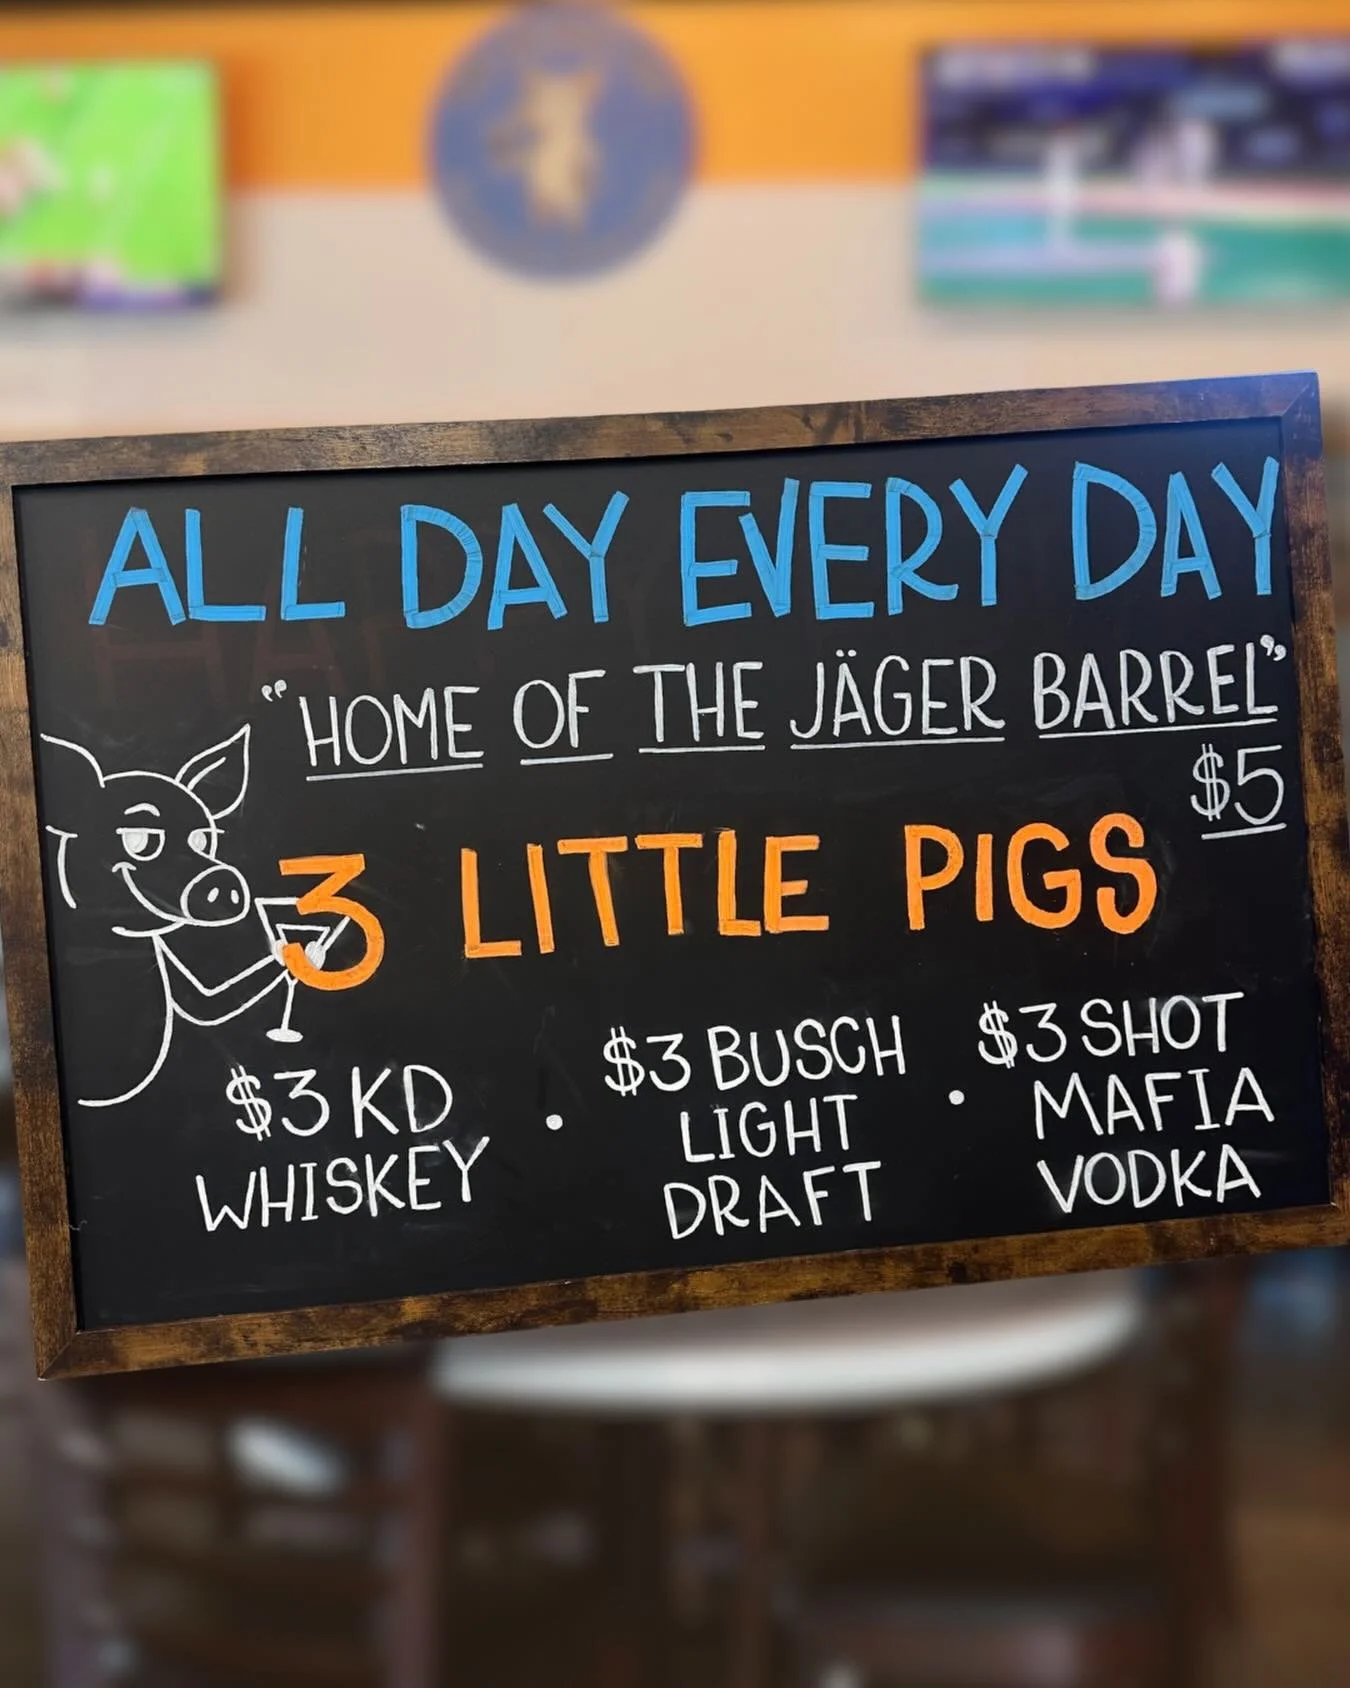 ALL DAY EVERY DAY
"HOME OF THE JÄGER BARREL"
$5
3 LITTLE PIGS
$3 KD
WHISKEY
•
$3 BUSCH
LIGHT
DRAFT
•
$3 SHOT
MAFIA
VODKA